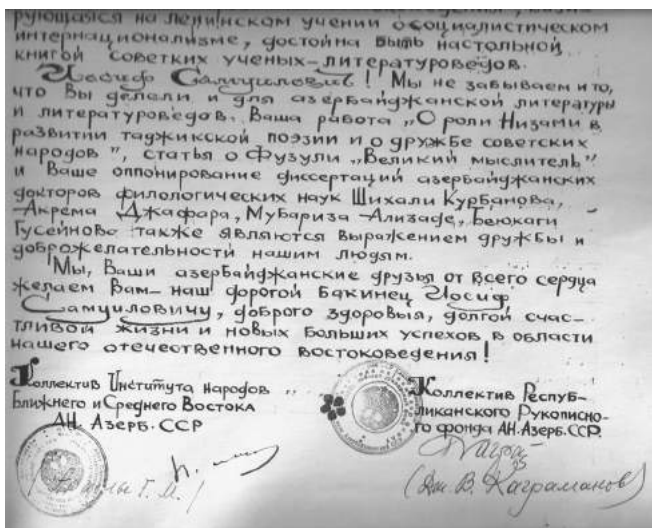 рующаяся на ленинском учении о социалистическом
интернационализме, достойна быть настольной
книгой советких ученых-литературоведов.
Иосиф Самуилович! Мы не забываем и то,
что Вы делали и для азербайджанской литературы
и литературоведов. Ваша работа „О роли Низами в
развитии таджикской поэзии и о дружбе советских
народов", статья о Физули „Великий мыслитель"
и Ваше оппонирование диссертаций азербайджанских
докторов филологических наук Шихали Курбанова,
Акрема Джафара, Мубариза Ализаде, Беюкаги
Гусейнова также являются выражением дружбы и
доброжелательности нашим людям.
Мы, Ваши азербайджанские друзья от всего сердца
желаем Вам – наш дорогой бакинец Иосиф
Самуилович, доброго здоровья, долгой счас-
тливой жизни и новых больших успехов в области
нашего отечественного востоковедения!
Коллектив Института народов
Ближнего и Среднего Востока
АН. Азерб. ССР
Коллектив Респуб-
ликанского Рукописно-
го фонда АН. Азерб. ССР.
(Дж. В. Каграманов)